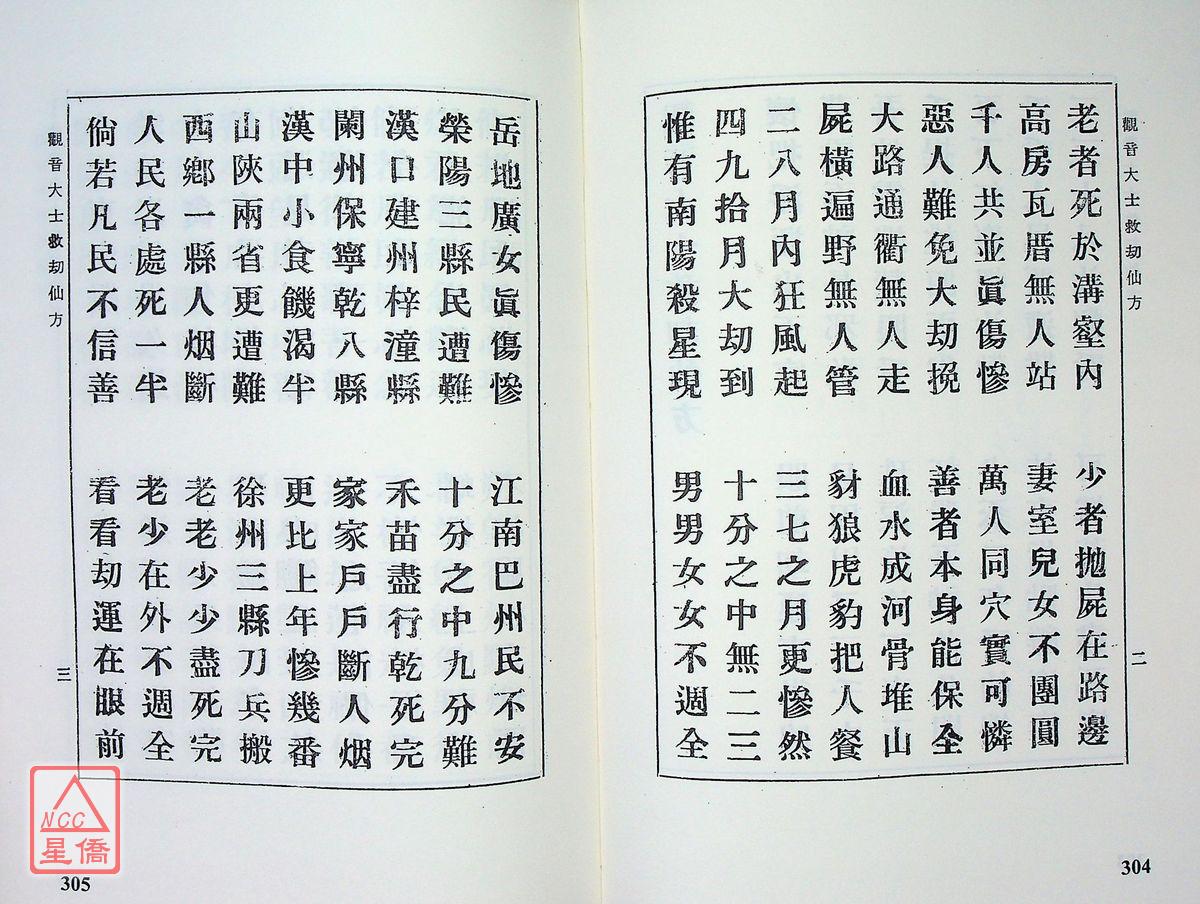 觀音大士救刧仙方
二
老者死於溝壑內 少者拋屍在路邊
高房瓦厝無人站 妻室兒女不團圓
千人共並眞傷慘 萬人同穴實可憐
惡人難免大刧挽 善者本身能保全
大路通衢無人走 血水成河骨堆山
屍橫遍野無人管 豺狼虎豹把人餐
二八月內狂風起 三七之月更慘然
四九拾月大刧到 十分之中無二三
惟有南陽殺星現 男男女女不週全
304
岳地廣女眞傷慘 江南巴州民不安
榮陽三縣民遭難 十分之中九分難
漢口建州梓潼縣 禾苗盡行乾死完
閬州保寧乾八縣 家家戶戶斷人烟
漢中小食饑渴半 更比上年慘幾番
山陜兩省更遭難 徐州三縣刀兵搬
西鄉一縣人烟斷 老老少少盡死完
人民各處死一半 老少在外不週全
倘若凡民不信善 看看刧運在眼前
觀音大士救刧仙方
三
305
NCC
星僑